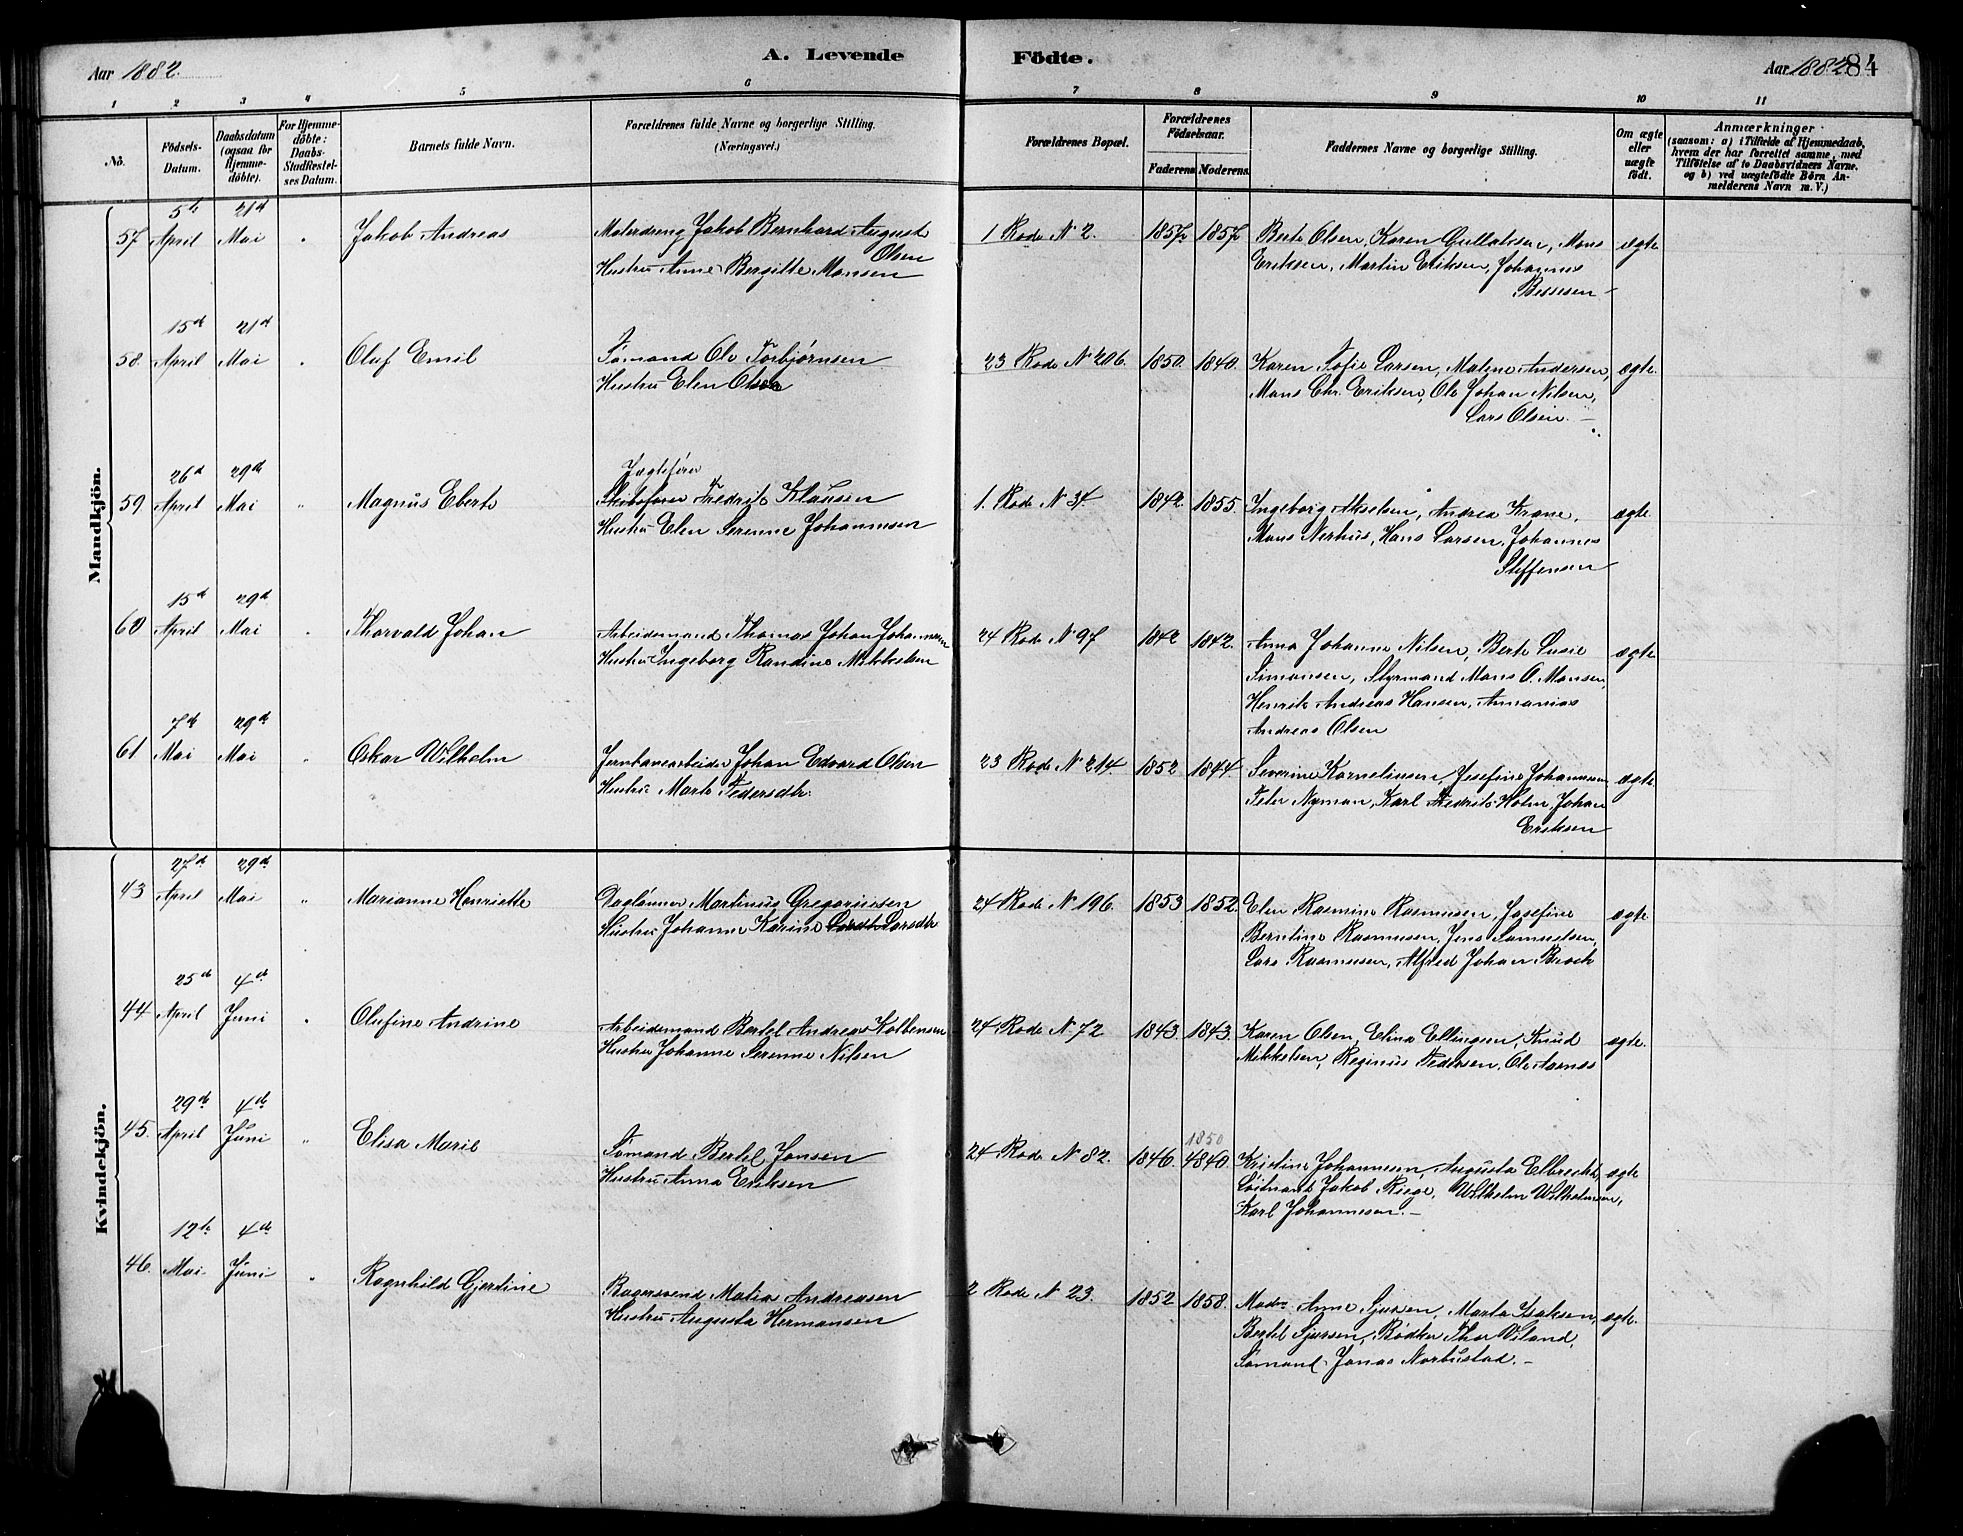 Aar 1882. A. Levende Födte. Aar 1882. 84
1 2 3 4 5 6 7 8 9 10 11
No. Födsels-Datum. Daabsdatum (ogsaa for Hjemme-döbte). For Hjemme-döbte: Daabs-Stadfestel-ses Datum. Barnets fulde Navn. Forældrenes fulde Navne og borgerlige Stilling. (Næringsvei.) Forældrenes Bopæl. Forældrenes Födselsaar. Faderens Moderens Faddernes Navne og borgerlige Stilling. Om ægte eller uægte födt. Anmærkninger (saasom: a) i Tilfælde af Hjemmedaab, hvem der har forrettet samme, med Tilföielse af to Daabsvidners Navne. og b) ved uægtefödte Börn An-melderens Navn m. V.)
Mandkjön.
5te 21d
57 April Mai Jakob Andreas Malerdreng Jakob Bernhard August Olsen 1 Rode N 2. 1857 1857 Berte Olsen, Karen Gullaksen, Mons ægte
Hustru Anne Bergitte Monsen Eriksen, Martin Eriksen, Johannes
Bessesen
15d 21d
58. April Mai Oluf Emil Sømand Ole Torbjørnsen 23 Rode N 206. 1850. 1840. Karen Sofie Larsen, Maline Andersen, ægte.
Hustru Elen Olsen Mons Chr. Eriksen, Ole Johan Nilsen,
Lars Olsen. —
26d 29d Jægtefører
59. April Mai Magnus Ebert Skibsfører Fredrik Klausen 1. Rode N 34. 1842. 1855. Ingeborg Akselsen, Andrea Krane, ægte
Hustru Elen Serenne Johannesen Mons Nerhus, Hans Larsen, Johannes
Steffensen
15d 29d
60 April Mai Thorvald Johan Arbeidsmand Thomas Johan Johannesen 24 Rode N 97 1842 1842. Anna Johanne Nilsen, Berte Lusie ægte
Hustru Ingeborg Randine Mikkelsen Simonsen, Styrmand Mons O. Monsen,
Henrik Andreas Hansen, Annanias
Andreas Olsen
7de 29d
61 Mai Mai Oskar Wilhelm Jernbanearbeider Johan Edvard Olsen 23 Rode N 214. 1852 1844 Severine Korneliusen, Josefine Johannesen ægte.
Hustru Marte Pedersdtr. Peter Nyman, Karl Fredrik Holm, Johan
Eriksen
Kvindekjön.
27d 29d
43 April Mai Marianne Henriette Daglønner Martinus Gregoriussen 24 Rode N 196. 1853 1852. Elen Rasmine Rasmussen, Josefine ægte
Hustru Johanne Karine Larsdtr Berntine Rasmussen, Jens Samuelsen,
Lars Rasmussen, Alfred Johan Brock
25d 4de
44 April Juni Olufine Andrine Arbeidsmand Bertel Andreas Kolbensen 24 Rode N 72 1843. 1843. Karen Olsen, Elina Ellingsen, Knud ægte.
Hustru Johanne Serenne Nilsen Mikkelsen, Reginius Pedersen, Ole Aarnes
29de 4de 1850
45. April Juni Elisa Marie Sømand Bertel Jansen 24 Rode N 82. 1846. 1840. Kristine Johannesen, Augusta Elbrecht, ægte
Hustru Anna Eriksen Løitnant Jakob Riege, Wilhelm Wilhelmsen,
Karl Johannesen. —
12te 4de
46. Mai Juni Ragnhild Gjertine Bagersvend Matia Andreasen 2 Rode N 23. 1852 1858. Madm Anne Sjursen, Marta Isaksen, ægte.
Hustru Augusta Hermansen Bertel Sjursen, Bødker Thor Viland,
Sømand Jonas Norbustad. —